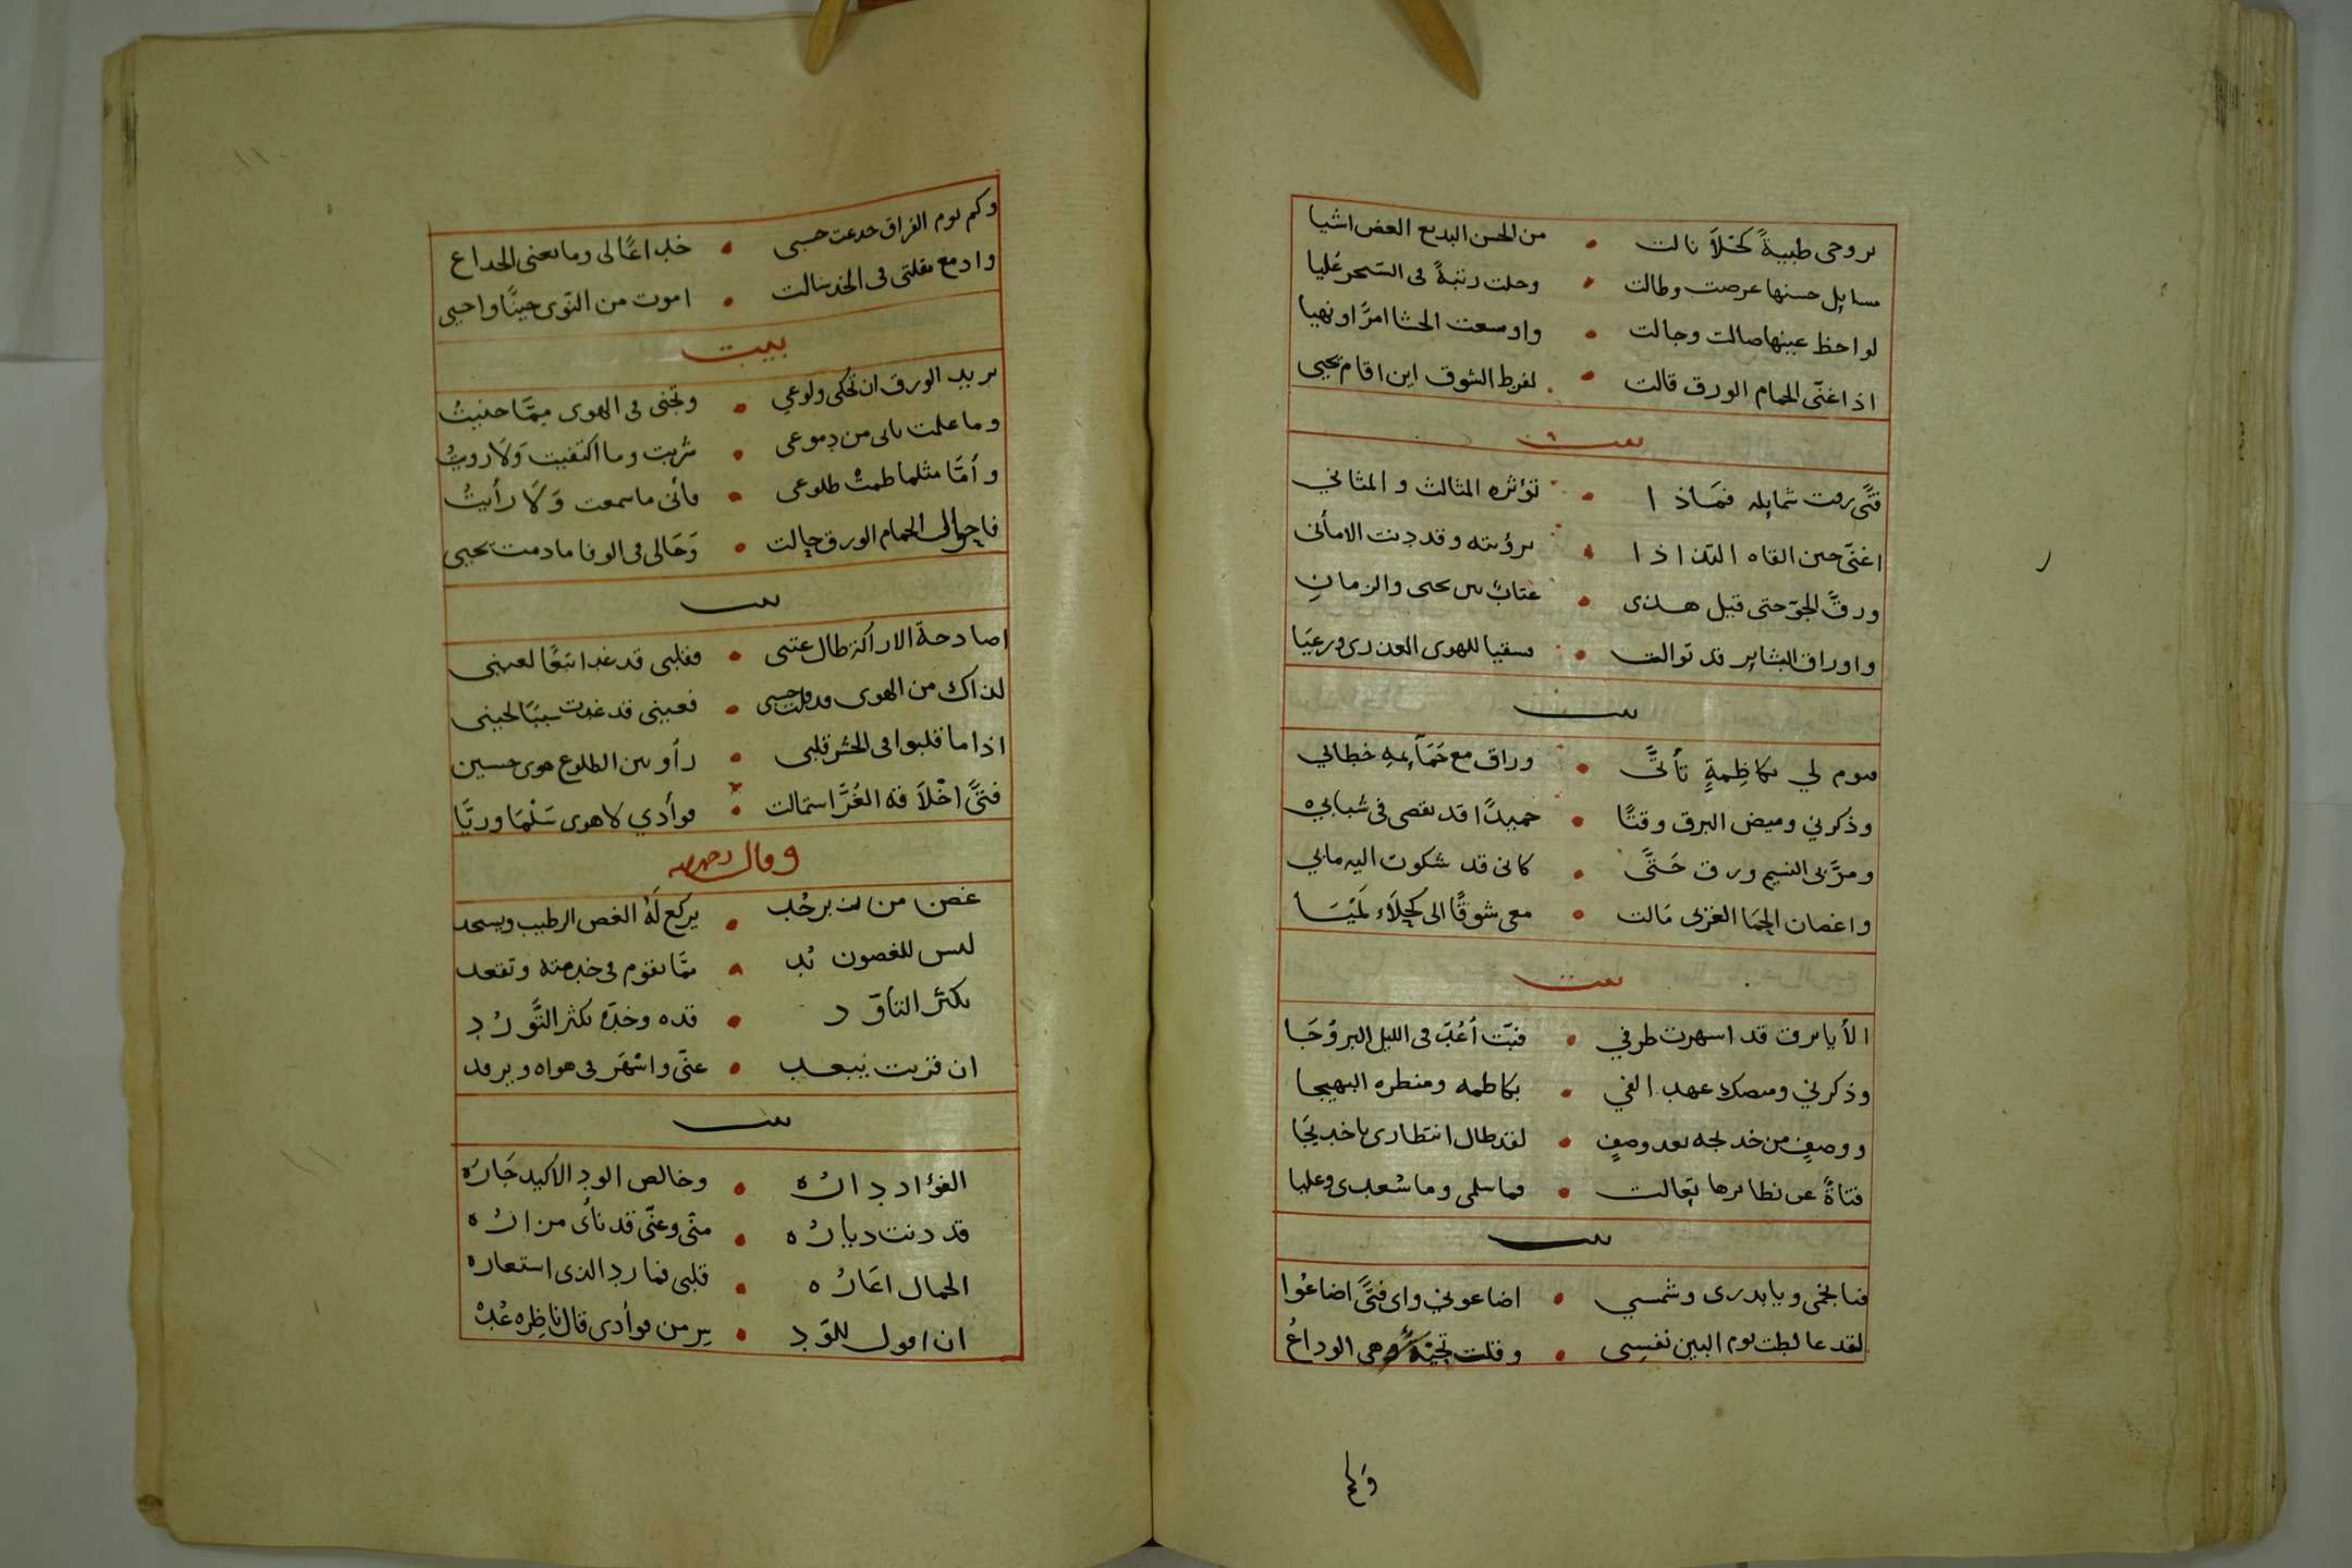 بروحي ظبيةً كحّلاَ نالت • من الحسن البديع الغض اشيا
مسايل حسنها عرضت وطالت • وحلت رتبةً في السّحر عُليا
لواحظ عينها صالت وجالت • واوسعت الحشا امرًا ونهيا
اذا غنّى الحمام الورق قالت • لفرط الشوق اين اقام يحيى
بيت
فتًى رقت شمايله فمَاذا • تؤثره المثالث و المثاني
اغنّى حين القاه التذاذا • برؤيته وقد دنت الاماني
ورقَّ الجوّ حتى قيل هذى • عتابٌ بين يحيى والزمانِ
واوراق البشاير قد توالت • فسقيا للهوى العذرى ورعيَا
بيت
فيوم لي بكاظِمةٍ تأنَّى • وراق مع حَمَآيمهِ خطابي
وذكرني وميض البرق وقتًا • حميدًا قد تقضى في شبابي
ومرَّ بى النسيم ورق حَتَّى • كانى قد شكوت اليه مابي
واغصان الحِمَا الغربى مَالت • معى شوقًا الى كحلَاء لَمْيَــا
بيت
الاَ يا برق قد اسهرت طرفي • فبتّ اَعُدّ فى الليل البروُجَا
وذكرني وميضك عهد الفي • بكاظمه ومنظره البهيجا
ووصفٍ من خدلجه بعد وصفٍ • لقد طال انتظارى يا خديجَا
فتاةً عن نظايرها تعَالت • فما سلمى وما سُعدى وعليا
بيت
فيا نجمى ويا بدرى وشمسي • اضاعوني واى فتًى اضاعُوا
لقد غالطت يوم البين نفسِى • وقلت تحيّةً وهى الوداعُ
وَكم
وكم يوم الفراق خدعت حسى • خداعًا لى وما يغنى الخداع
وادمع مقلتى فى الخد سالت • اموت من النّوى حينًا واحيى
بيت
يريد الورق ان تُحكى ولوعي • وتجنى فى الهوى ممَّا جنيتُ
وما علمت بانى من دموعى • شربت وما اكتفيت وَلَا رويتُ
وأمَّا مثلما طمتْ طلوعى • فانى ما سمعت وَلَا رأيتُ
فاحوالى الحمام الورق حالت • وَحَالى فى الوفا ما دمت يحيى
بيت
اصادحة الاراكة طال عتبى • فقلبى قد غدا تبعًا لعينى
لذاك من الهوى • فعينى قد غدت سببًا لحينى
اذا ما قلبوا فى الحشر قلبى • رأو بين الضلوع هوى حسين
فتًى اخْلَاقه الغُرَّ استمالت • فوأدي لا هوى سَلْمَا وريَّا
وقال رحمه الله
غصن من يركع لَهُ الغصن الرطيب ويسجد
ليس للغصون بُد • ممَّا تقوم فى خدمته وتقعد
بكثر التأوّد • قده وخدّه بكثر التَّورّد
ان قربت يبعد • عنّى واسْهَر فى هواه ويرقد
بيت
الفؤاد دارُه • وخالص الود الاكيد جَارُه
قد دنت ديارُه • منّى وعنّى قد نأى مزارُه
الجمال اعَارُه • قلبى فما رد الذى استعاره
ان اقول للوّد • سر من فوأدى قال ناظِره عُدْ